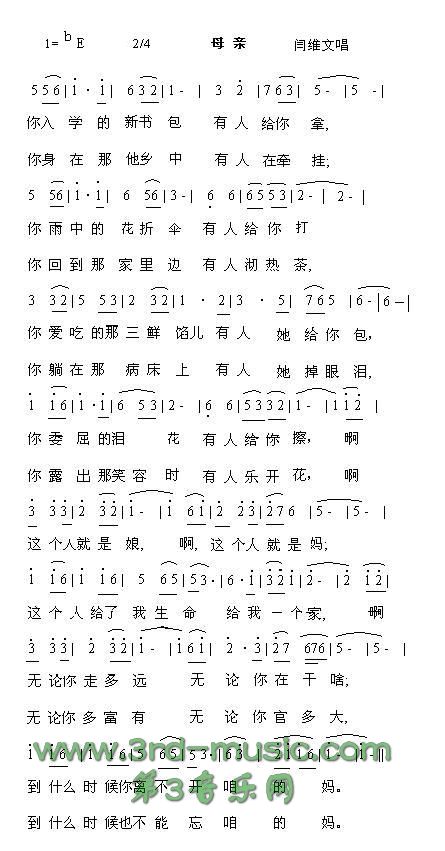 1= ᵇE 2/4 母亲 闫维文唱
5 5 6 | 1 · 1 | 6 3 2 | 1 - | 3 2 | 7 6 3 | 5 - | 5 - |
你入 学 的 新书 包 有 人 给你 拿,
你身 在 那 他乡 中 有 人 在牵 挂;
5 56 | 1 · 1 | 6 56 | 3 - | 6 6 | 65 53 | 2 - | 2 - |
你 雨 中 的 花 折 伞 有 人 给 你 打
你 回 到 那 家 里 边 有 人 沏 热 茶,
3 32 | 5 53 | 2 32 | 1 · 2 | 3 · 5 | 7 65 | 6 - | 6 - |
你 爱 吃 的 那 三 鲜 馅儿 有 人 她 给 你 包,
你 躺 在 那 病 床 上 有 人 她 掉 眼 泪,
1 16 | 1 · 1 | 6 53 | 2 - | 6 6 | 53 32 | 1 - | 1 12 |
你 委 屈 的泪 花 有 人 给 你 擦, 啊
你 露 出 那笑 容 时 有 人 乐 开 花, 啊
3 33 | 2 32 | 1 - | 1 61 | 2 23 | 276 | 5 - | 5 - |
这 个 人就 是 娘, 啊, 这 个 人 就 是 妈;
1 16 | 1 16 | 5 65 | 53 · | 6 · 1 | 321 | 2 - | 2 12 |
这 个 人 给了 我 生 命 给 我 一 个 家, 啊
3 33 | 2 32 | 1 - | 1 61 | 2 · 3 | 27 676 | 5 - | 5 - |
无 论你 走 多 远 无 论 你 在 干 啥;
无 论你 多 富 有 无 论 你 官 多 大,
1 16 | 1 16 | 5 65 | 53 · | 63 | 21 16 | 1 - | 1 - |
www.3rd-music.com
到 什么 时 候你离 不 开 咱 的 妈。
第3音乐网
到 什么 时 候也不 能 忘 咱 的 妈。